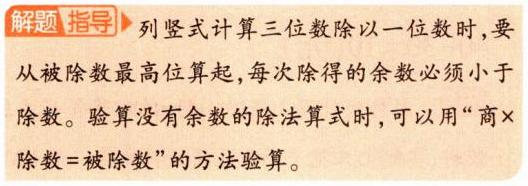 解题指导 列竖式计算三位数除以一位数时,要
从被除数最高位算起,每次除得的余数必须小于
除数。验算没有余数的除法算式时,可以用“商×
除数=被除数”的方法验算。